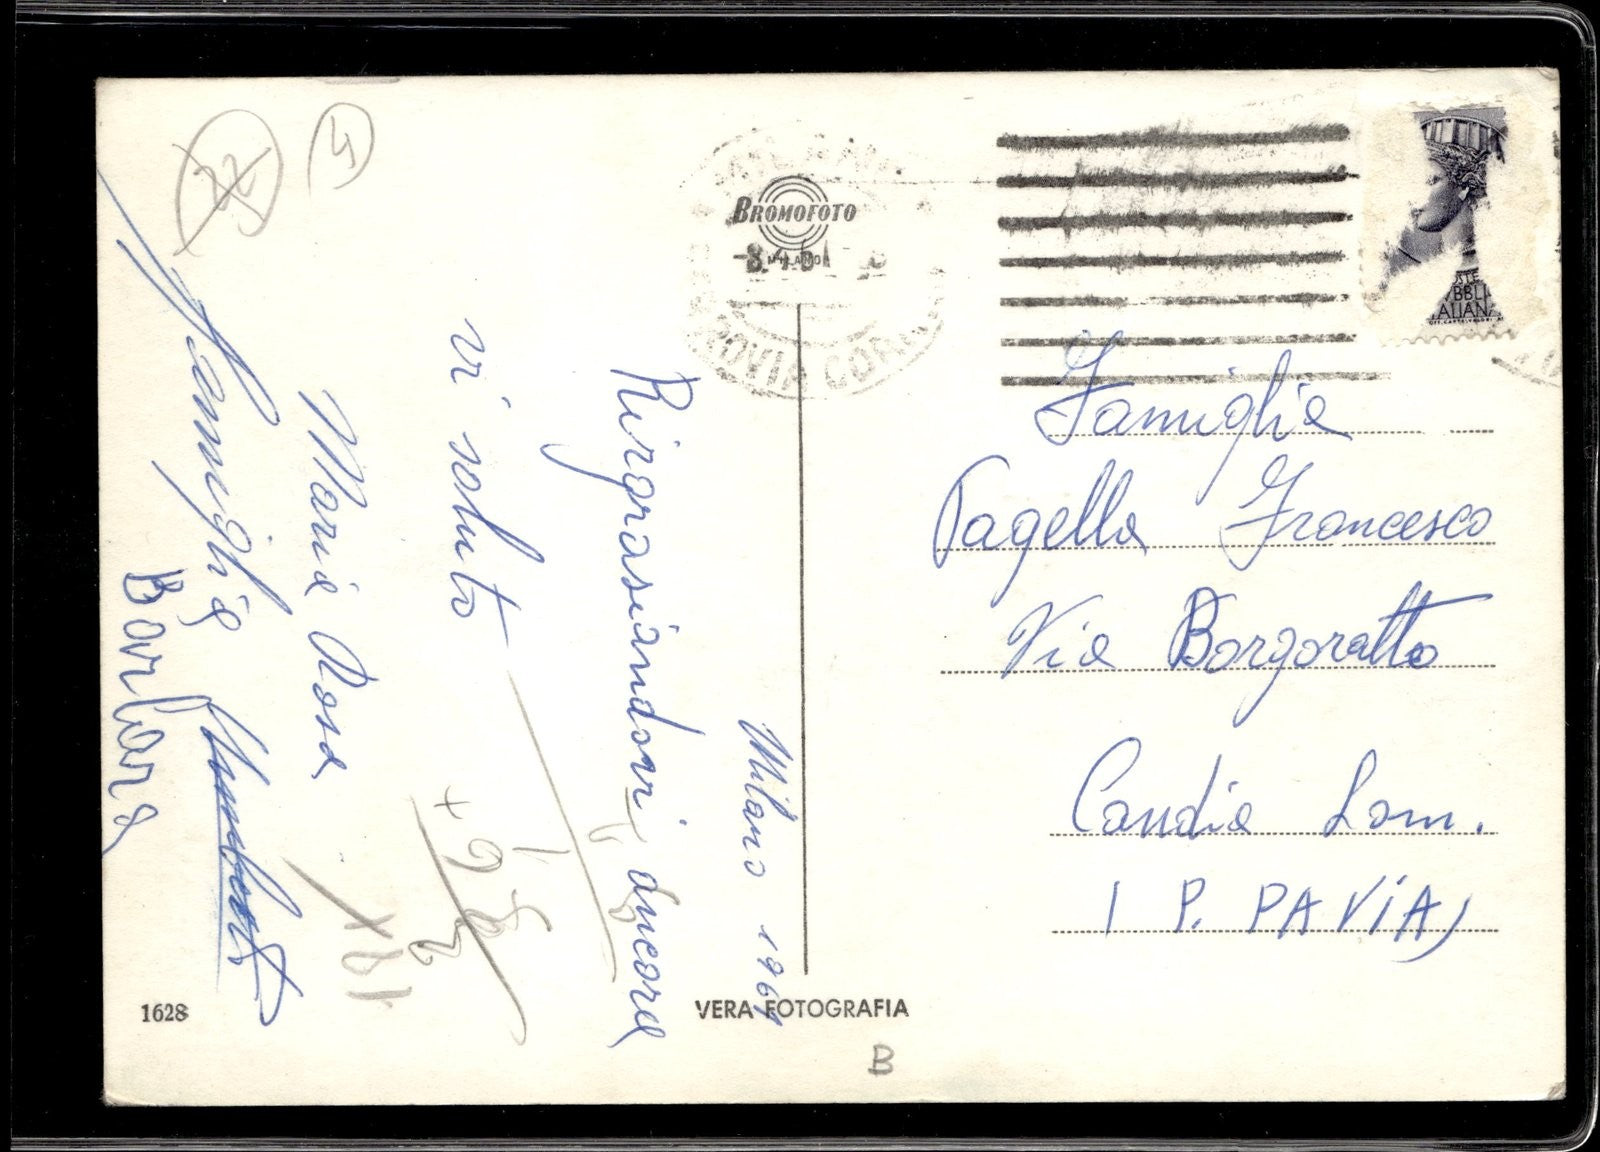 4
BROMOFOTO
MILANO
Milano 1961
Ringrasiandovi, ancora
vi saluto
Maria Rosa
Famiglia
Barbara
Famiglia
Pagella Francesco
Via Borgoratto
Candia Lom.
( P. PAVIA)
1628
VERA FOTOGRAFIA
B